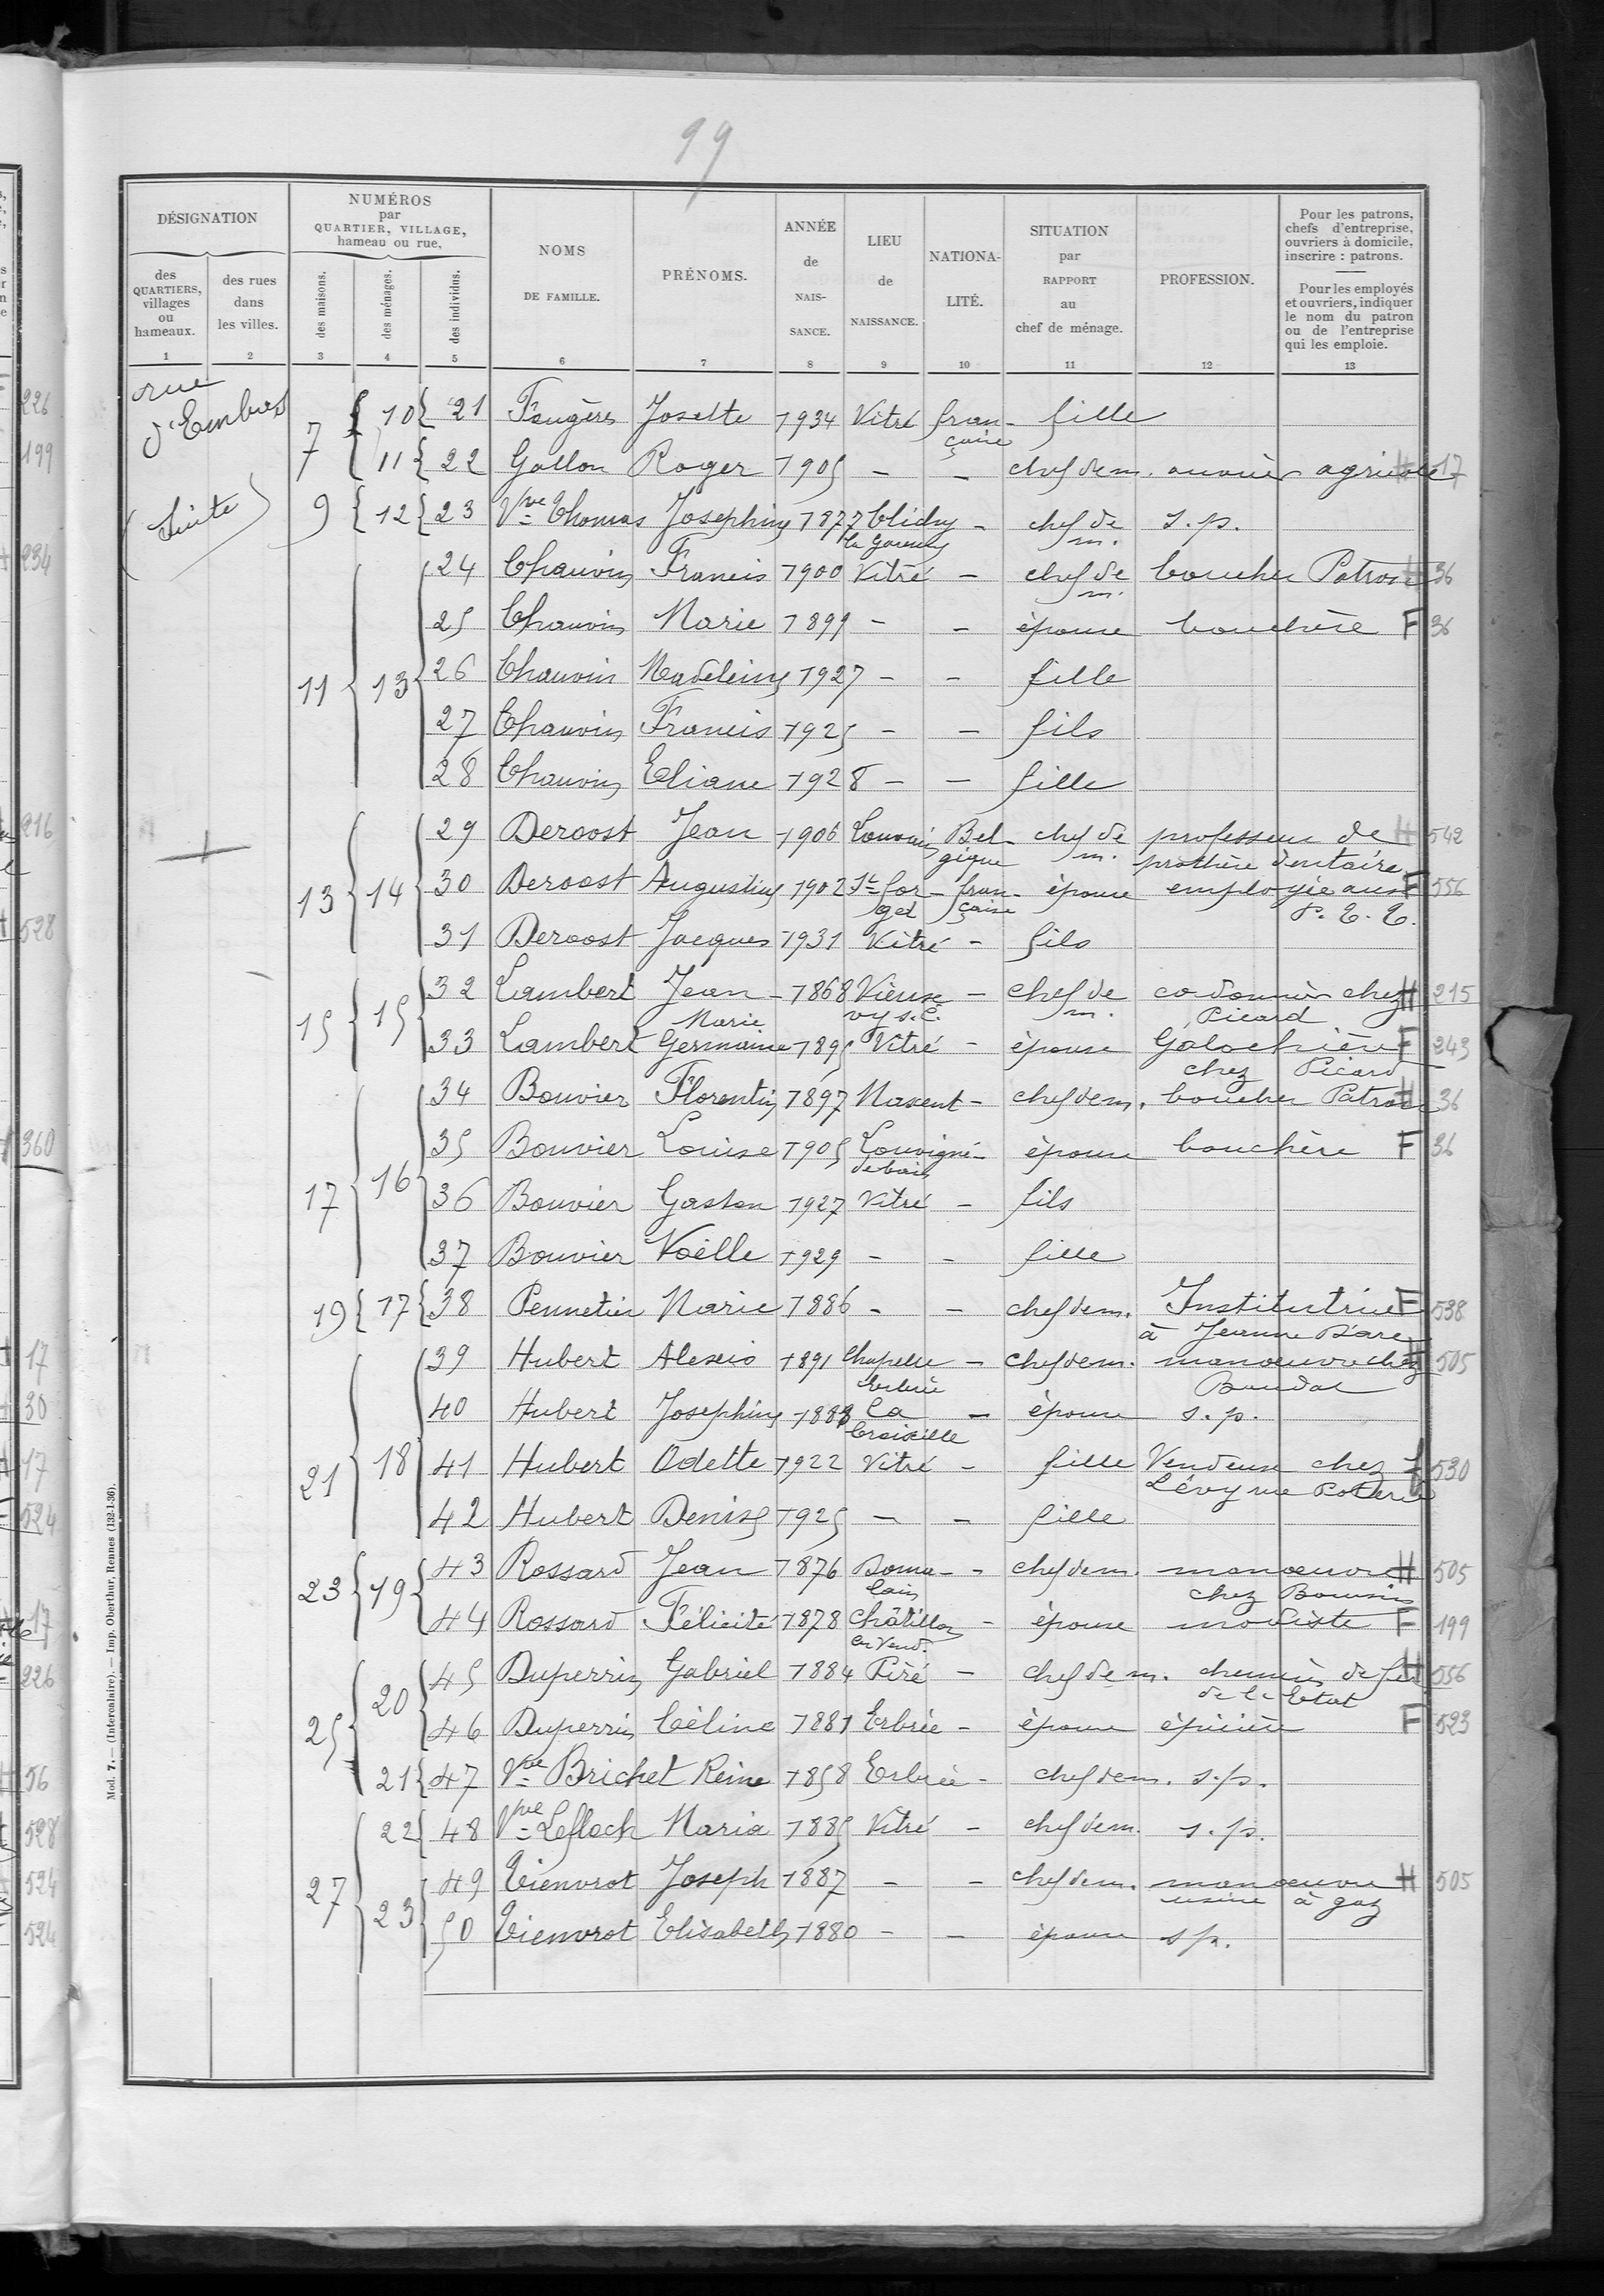 99
DÉSIGNATION
NUMÉROS
par
QUARTIER, VILLAGE,
hameau ou rue.
des
QUARTIERS,
villages
ou
hameaux.
des rues
dans
les villes.
des maisons.
des ménages.
des individus.
NOMS
DE FAMILLE.
PRÉNOMS.
ANNÉE
de
NAIS-
SANCE.
LIEU
de
NAISSANCE.
NATIONA-
LITÉ.
SITUATION
par
RAPPORT
au
chef de ménage.
PROFESSION.
Pour les patrons,
chefs d'entreprise,
ouvriers à domicile,
inscrire : patrons.
Pour les employés
et ouvriers, indiquer
le nom du patron
ou de l'entreprise
qui les emploie.
1 2 3 4 5 6 7 8 9 10 11 12 13
rue
d'Embas
(Suite)
7 10 21 Fougères Josette 1934 Vitré fran- fille
çaise
11 22 Gallon Roger 1905 - - chef de m. ouvrier agricole H 17
9 12 23 Vve Thomas Josephine 1877 Clichy - chef de s.p.
la Garenne m.
11 13 24 Chauvin Francis 1900 Vitré - chef de boucher Patron H 36
m.
25 Chauvin Marie 1899 - - épouse bouchère F 36
26 Chauvin Madeleine 1927 - - fille
27 Chauvin Francis 1925 - - fils
28 Chauvin Eliane 1928 - - fille
13 14 29 Deroost Jean 1906 Louvain Bel- chef de professeur de H 542
gique m. prothèse dentaire
30 Deroost Augustine 1902 St for- fran- épouse employée aux F 556
get çaise P.T.T.
31 Deroost Jacques 1931 Vitré - fils
15 15 32 Lambert Jean 1868 Vieux - chef de cordonnier chez H 215
Marie vy s. C. m. Picard
33 Lambert Germaine 1895 Vitré - épouse Galochière F 243
chez Picard
17 16 34 Bouvier Florentin 1897 Maxent - chef de m. boucher Patron H 36
35 Bouvier Louise 1905 Louvigné - épouse bouchère F 36
de bais
36 Bouvier Gaston 1927 Vitré - fils
37 Bouvier Noëlle 1929 - - fille
19 17 38 Pennetier Marie 1886 - - chef de m. Institutrice F 538
à Jeanne D'arc
21 18 39 Hubert Alexis 1891 Chapelle - chef de m. manoeuvre chez H 505
Erbrée
40 Hubert Josephine 1883 La - épouse s.p.
Croixille
41 Hubert Odette 1922 Vitré - fille Vendeuse chez F 530
Lévy rue Poterie
42 Hubert Denise 1925 - - fille
23 19 43 Rossard Jean 1876 Doma- - chef de m. manoeuvre H 505
lain chez
44 Rossard Félicité 1878 Châtillon - épouse modiste F 199
en Vend.
25 20 45 Duperrin Gabriel 1884 Piré - chef de m. chemin de fer H 556
de l'Etat
46 Duperrin Céline 1881 Erbrée - épouse épicière F 523
21 47 Vve Brichet Reine 1858 Erbrée - chef de m. s.p.
27 22 48 Vve Lefloch Maria 1885 Vitré - chef de m. s.p.
23 49 Tienvrot Joseph 1887 - - chef de m. manoeuvre H 505
usine à gaz
50 Tienvrot Elisabeth 1880 - - épouse s p.
Mod. 7. — (Intercalaire). — Imp. Oberthur, Rennes (132-1-36).
226
199
234
216
528
360
17
30
17
524
17
226
56
528
524
524